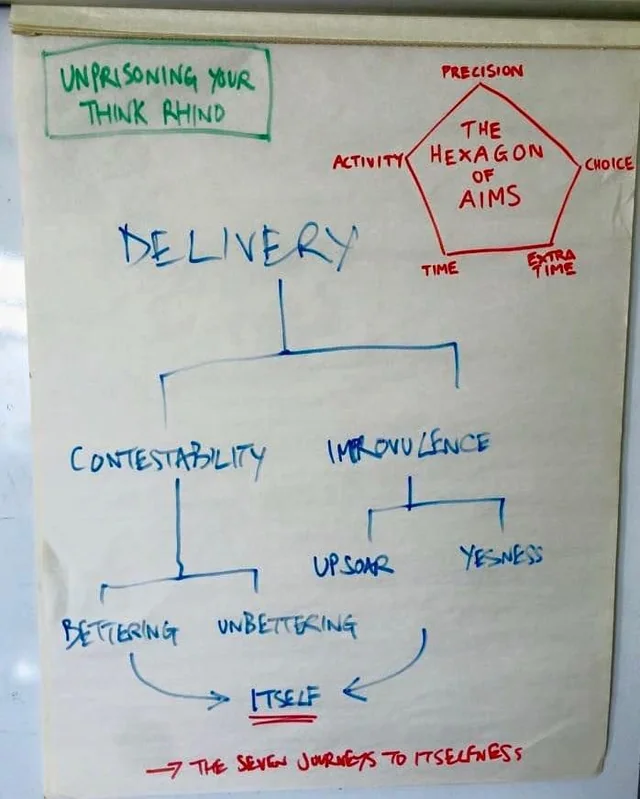 UNPRISONING YOUR
THINK RHINO
PRECISION
ACTIVITY
THE
HEXAGON
OF
AIMS
CHOICE
TIME
EXTRA
TIME
DELIVERY
CONTESTABILITY
IMPROVULENCE
UPSOAR
YESNESS
BETTERING
UNBETTERING
ITSELF
→ THE SEVEN JOURNEYS TO ITSELFNESS